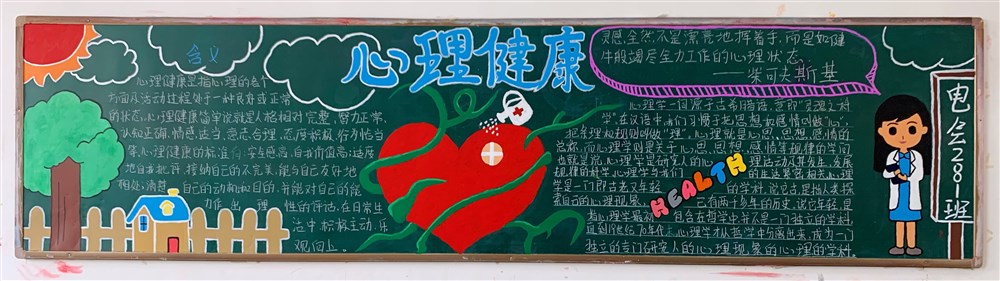 心理健康
含义
心理健康是指心理的各个
方面及活动过程处于一种良好或正常
的状态。心理健康
人格相对完整、智力正常、
认知正确、情感适当、意志合理、态度积极、行为恰当
心理健康的标准有安全感高,自我价值高;适度
地自我批评,接纳自己的不完美,能与自己友好地
相处,清楚自己的动机和目的,并能对自己的能
力作出理性的评估,在日常生
活中积极主动,乐
观向上。
灵感,全然不是漂亮地挥着手,而是如健
牛般竭尽全力工作的心理状态。
——柴可夫斯基
心理学一词源于古希腊语,意即“灵魂之科
学”。在汉语中,人们习惯于把思想和感情叫做“心”,
把条理和规则叫做“理”,心理就是心思、思想、感情的
总称,而心理学则是关于心思、思想、感情等规律的学问
也就是说,心理学是研究人的心理活动及其发生、发展
规律的科学。心理学与我们的生活紧密相关。心理
学是一门既古老又年轻的学科,说它古,是指人类探
索自己的心理现象已有两千多年的历史,说它年轻,是
指心理学最初包含在哲学中并不是一门独立的学科,
直到19世纪70年代末,心理学才从哲学中分离出来,成为一门
独立的专门研究人的心理现象的心理的学科。
HEALTH
电会281班